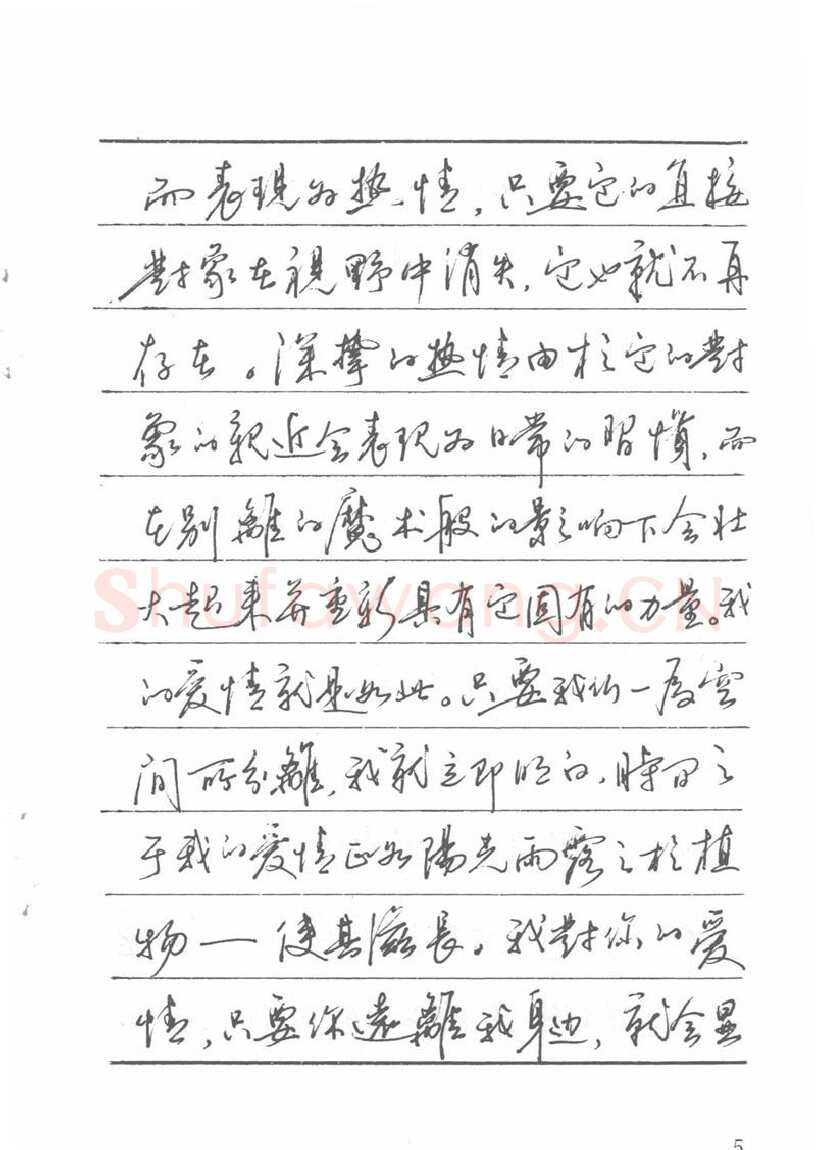 而表現为热情，只要它的直接
對象在視野中消失，它也就不再
存在。深摯的热情由於它的對
象的親近会表現为日常的習慣，而
在别離的魔术般的影响下会壮
大起來并重新具有它固有的力量。我
的爱情就是如此。只要我们一为空
间所分離，我就立即明白，時间之
于我的爱情正如陽光雨露之於植
物——使其滋長。我對你的爱
情，只要你遠離我身边，就会显
Shufawang.CN
5